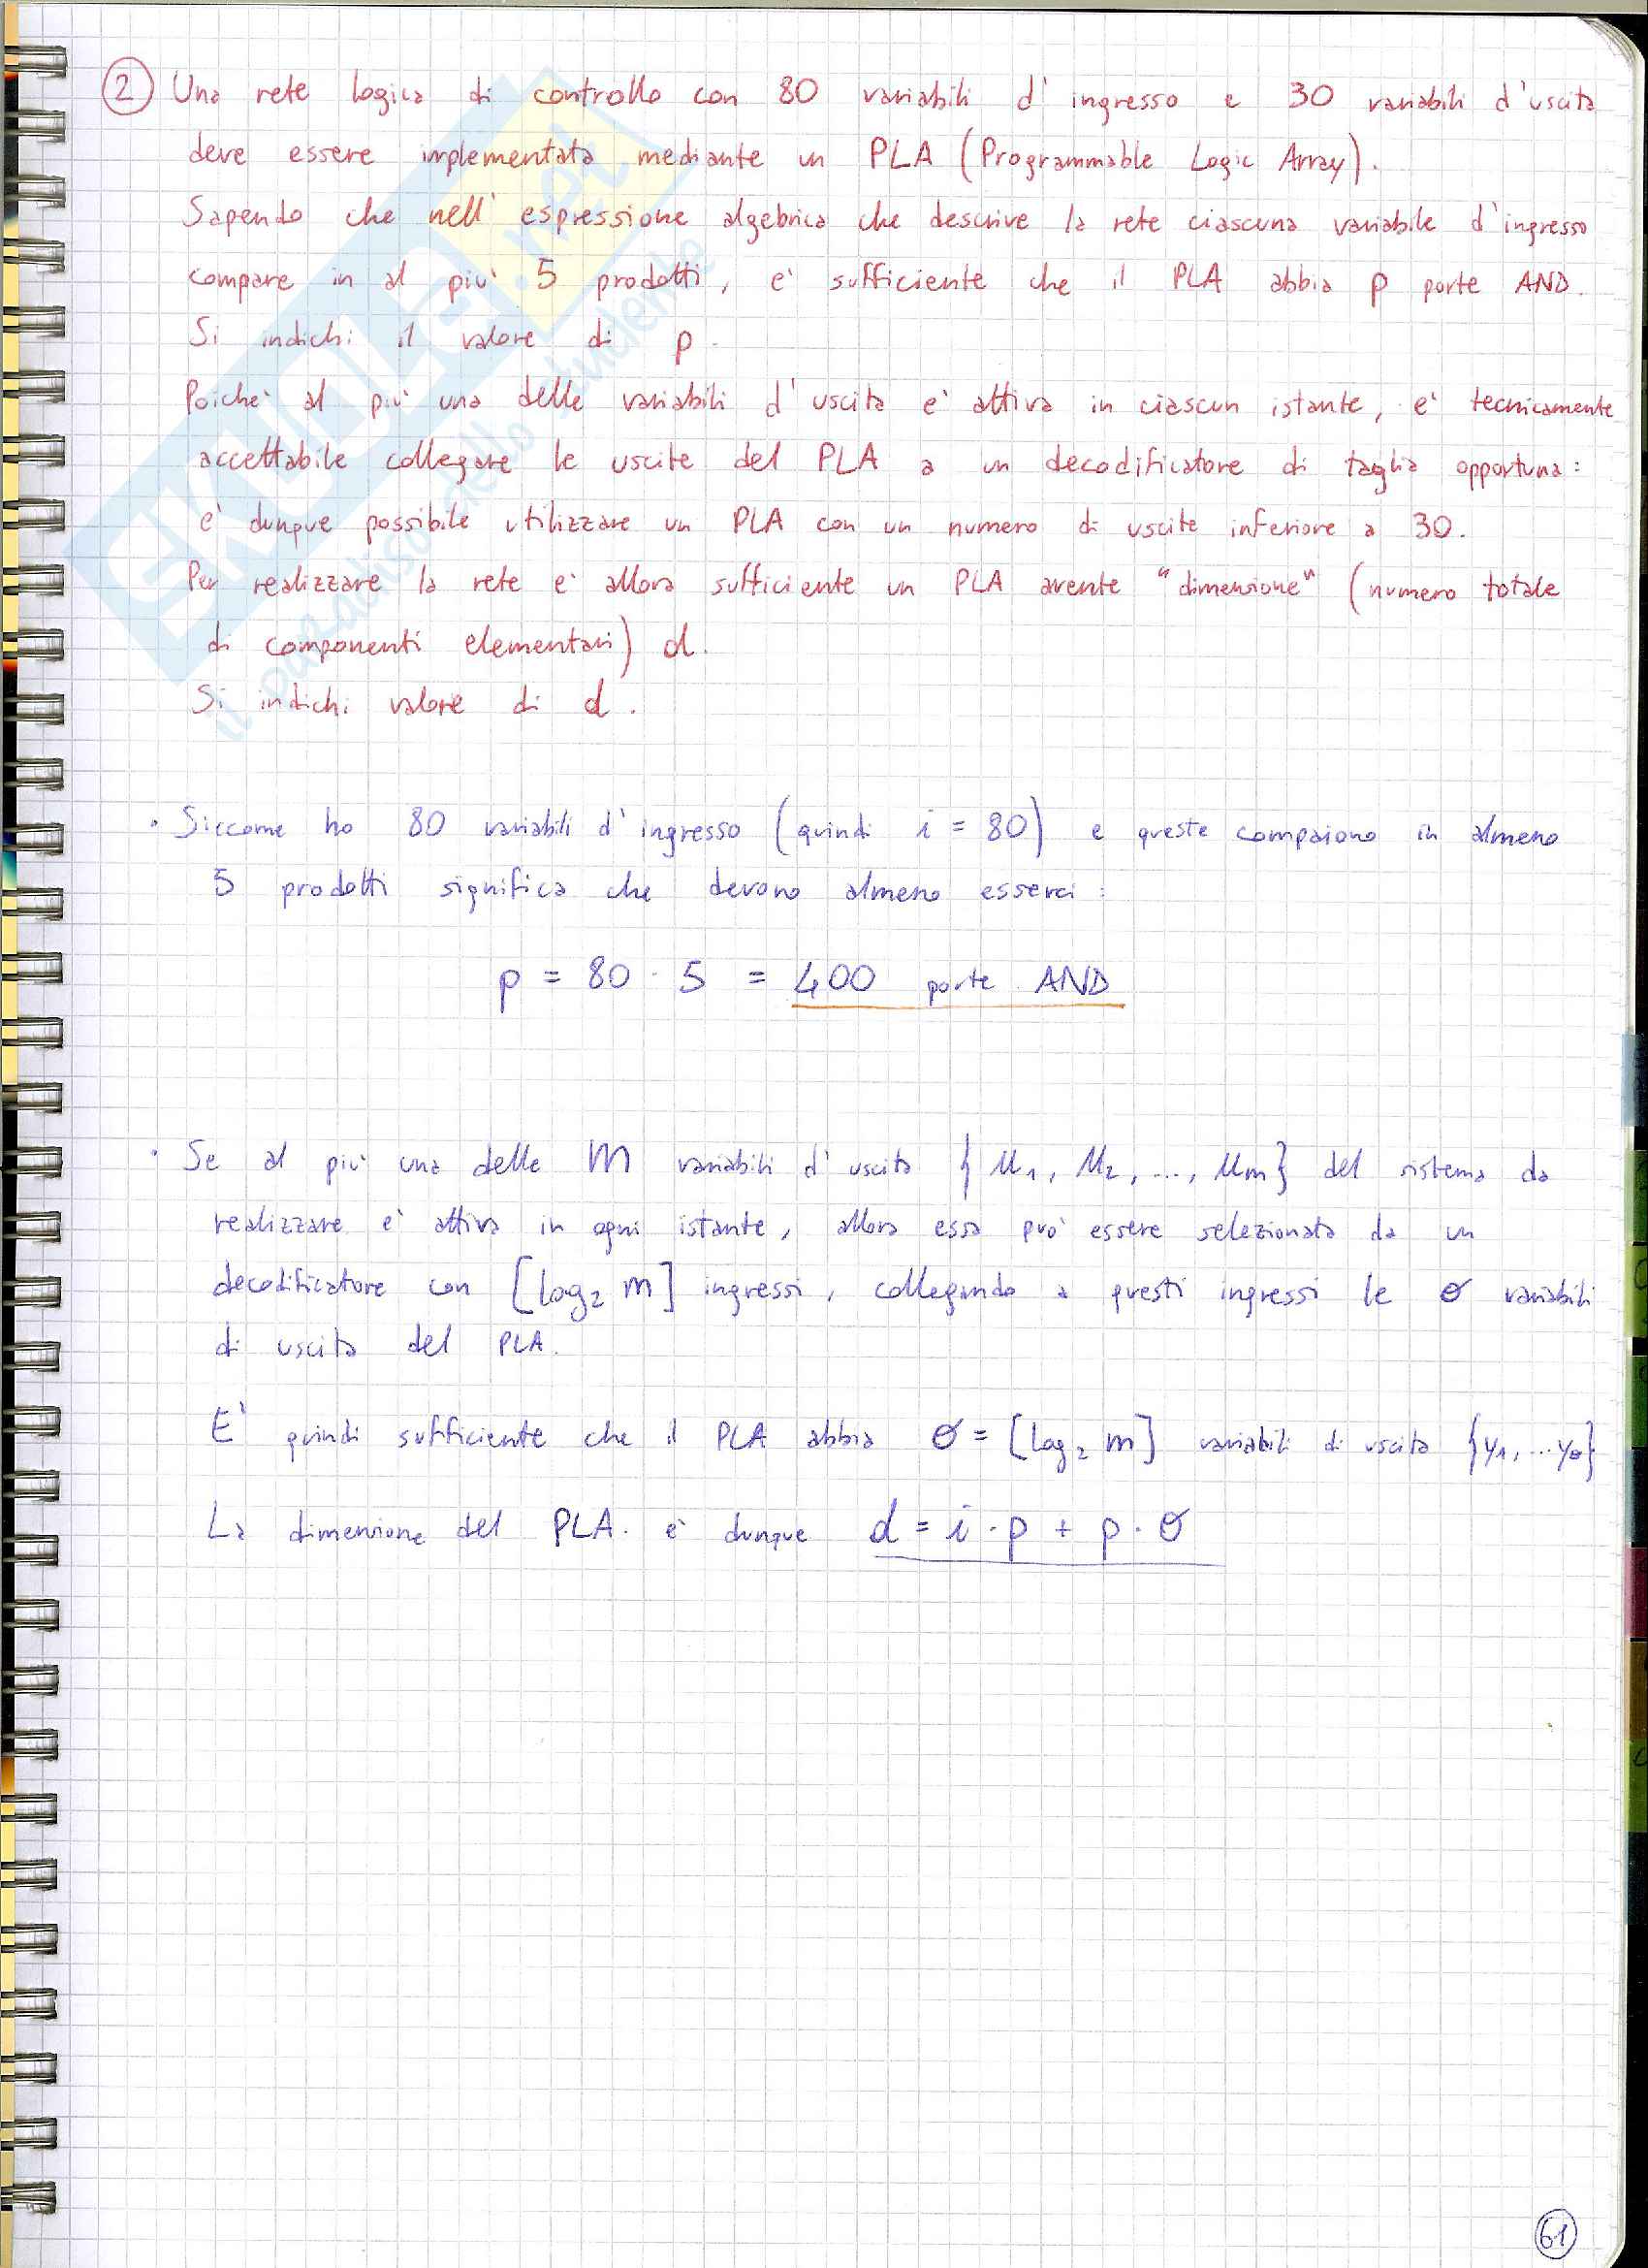 ② Una rete logica di controllo con 80 variabili d'ingresso e 30 variabili d'uscita
deve essere implementata mediante un PLA (Programmable Logic Array).
Sapendo che nell'espressione algebrica che descrive la rete ciascuna variabile d'ingresso
compare in al più 5 prodotti, e' sufficiente che il PLA abbia p porte AND.
Si indichi il valore di p.
Poichè al più una delle variabili d'uscita e' attiva in ciascun istante, e' tecnicamente
accettabile collegare le uscite del PLA a un decodificatore di taglia opportuna:
e' dunque possibile utilizzare un PLA con un numero di uscite inferiore a 30.
Per realizzare la rete e' allora sufficiente un PLA avente "dimensione" (numero totale
di componenti elementari) d.
Si indichi valore di d.
• Siccome ho 80 variabili d'ingresso (quindi i = 80) e queste compaiono in almeno
5 prodotti significa che devono almeno esserci:
p = 80 · 5 = 400 porte AND
• Se al più una delle m variabili d'uscita {μ1, μ2, ..., μm} del sistema da
realizzare e' attiva in ogni istante, allora essa può essere selezionata da un
decodificatore con [log2 m] ingressi, collegando a questi ingressi le σ variabili
di uscita del PLA.
E' quindi sufficiente che il PLA abbia σ = [log2 m] variabili di uscita {y1, ... yσ}
La dimensione del PLA e' dunque d = i · p + p · σ
61
SKUOLA.net
il paradiso dello studente